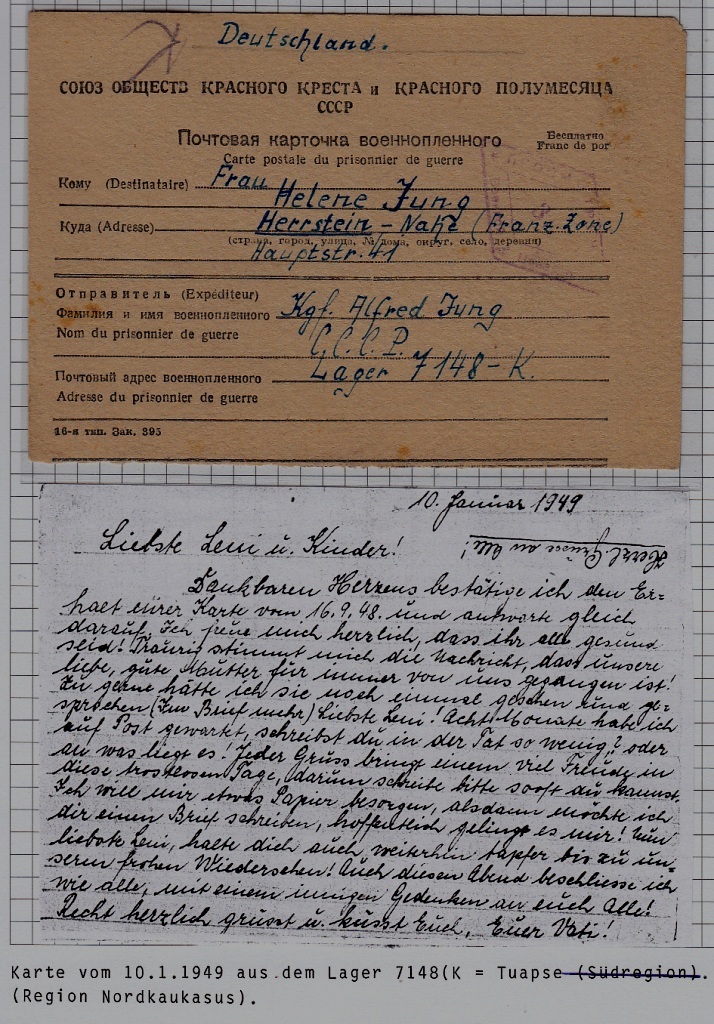 Deutschland.
СОЮЗ ОБЩЕСТВ КРАСНОГО КРЕСТА и КРАСНОГО ПОЛУМЕСЯЦА
СССР
Почтовая карточка военнопленного
Бесплатно
Carte postale du prisonnier de guerre
Franc de por
Кому (Destinataire) Frau
Helene Jung
Куда (Adresse) Herrstein - Nahe (Franz. Zone)
(страна, город, улица, № дома, округ, село, деревня)
Hauptstr. 41
Отправитель (Expéditeur)
Фамилия и имя военнопленного Kgf. Alfred Jung
Nom du prisonnier de guerre
C.C.C.P.
Почтовый адрес военнопленного Lager 7148-K.
Adresse du prisonnier de guerre
16-я тип. Зак. 395
10. Januar 1949
Herzl. Grüsse an alle!
Liebste Leni u. Kinder!
Dankbaren Herzens bestätige ich den Er=
halt eurer Karte vom 16.9.48. und antworte gleich
darauf. Ich freue mich herzlich, dass ihr alle gesund
seid! Traurig stimmt mich die Nachricht, dass unsere
liebe, gute Mutter für immer von uns gegangen ist!
Zu gerne hätte ich sie noch einmal gesehen und ge=
sprochen (Im Brief mehr) Liebste Leni! Acht Monate habe ich
auf Post gewartet, schreibst du in der Tat so wenig? oder
an was liegt es! Jeder Gruss bringt einem viel Freude in
diese trostlosen Tage, darum schreibe bitte sooft du kannst.
Ich will mir etwas Papier besorgen, alsdann möchte ich
dir einen Brief schreiben, hoffentlich gelingt es mir! Nun
liebste Leni, halte dich auch weiterhin tapfer bis zu un=
serem frohen Wiedersehen! Auch diesen Abend beschliesse ich
wie alle, mit einem innigen Gedenken an euch Alle!
Recht herzlich grüsst u. küsst Euch, Euer Vati!
Karte vom 10.1.1949 aus dem Lager 7148(K = Tuapse (Südregion).
(Region Nordkaukasus).